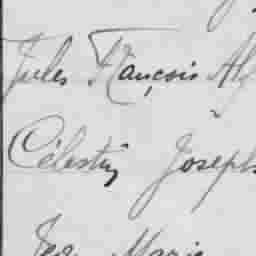 Jules François Al
Célestin Joseph
Marie